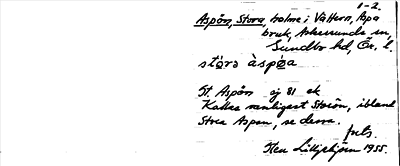 1-2.
Aspön, Stora, holme i Vättern, Aspa
bruk, Askersunds sn,
Sundbo hd, Ör. l.
stóra àspǿa
St. Aspön ej 81 ek
Kallas vanligast Storön, ibland
Stora Aspön, se denna.
Sten Liljehjörn 1955.